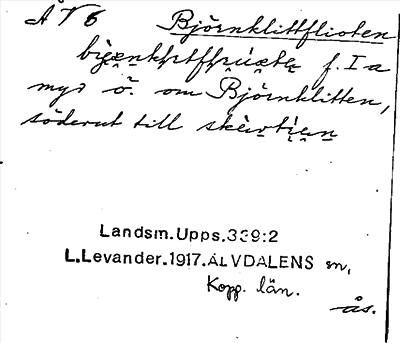 Å V 6 Björnklittflioten
f. I a
myr ö. om Björnklitten,
söderut till
Landsm.Upps.339:2
L.Levander.1917.ÄLVDALENS sn,
Kopp. län.
ås.